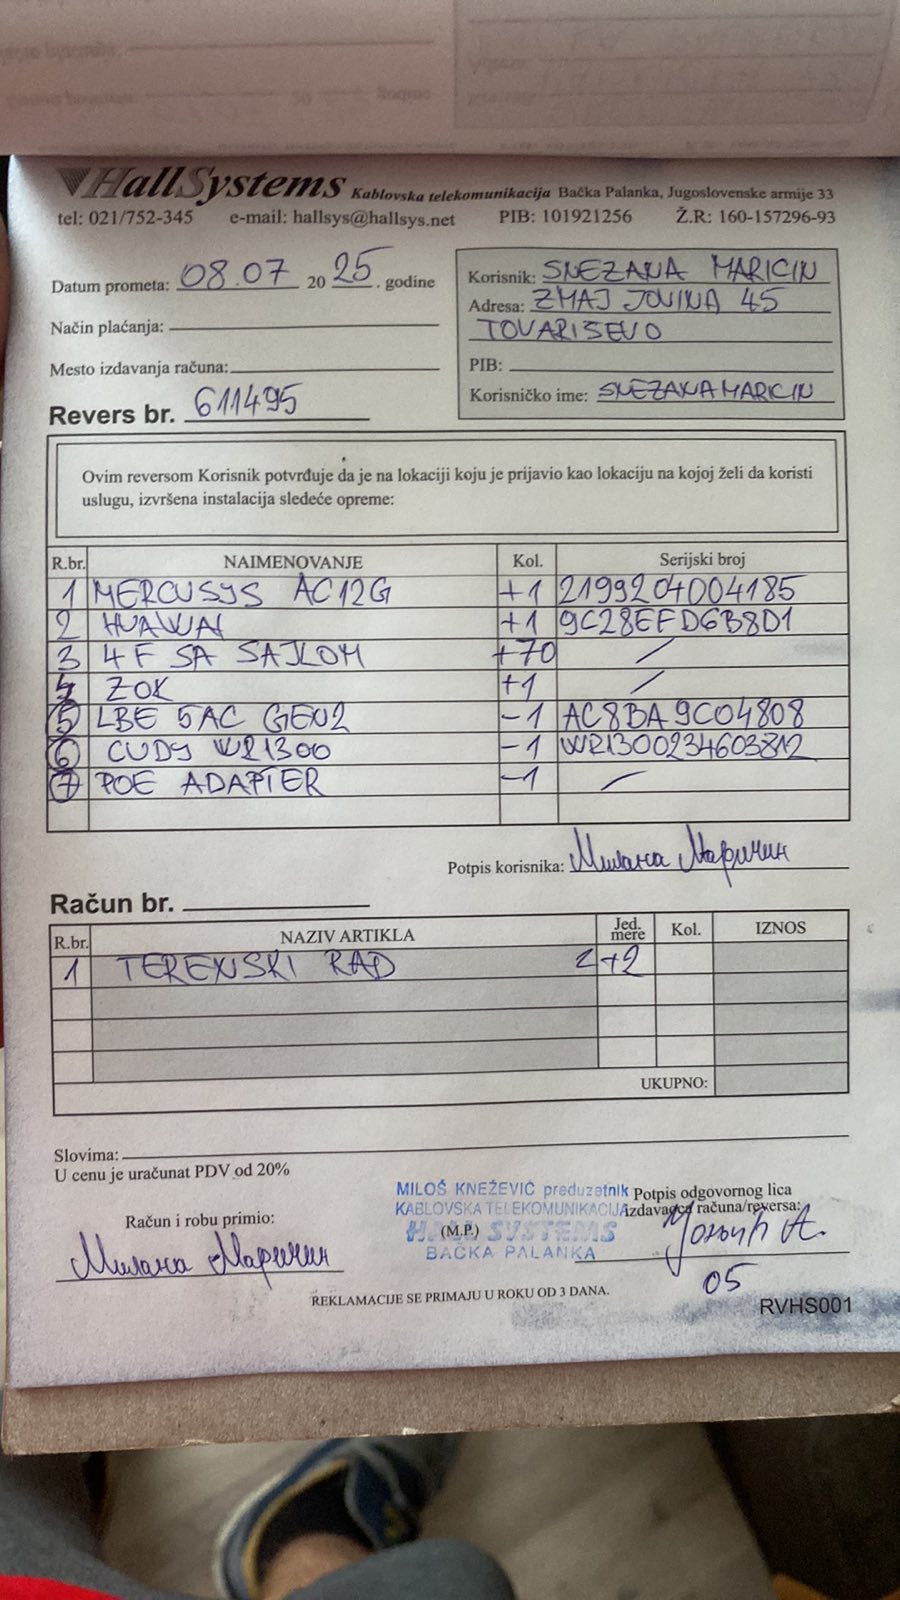 HallSystems Kablovska telekomunikacija Bačka Palanka, Jugoslovenske armije 33
tel: 021/752-345 e-mail: hallsys@hallsys.net PIB: 101921256 Ž.R: 160-157296-93
Datum prometa: 08.07 2025. godine
Način plaćanja:
Mesto izdavanja računa:
Revers br. 611495
Korisnik: SNEZANA MARICIN
Adresa: ZMAJ JOVINA 45
TOVARISEVO
PIB:
Korisničko ime: SNEZANAMARICIN
Ovim reversom Korisnik potvrđuje da je na lokaciji koju je prijavio kao lokaciju na kojoj želi da koristi
uslugu, izvršena instalacija sledeće opreme:
R.br. NAIMENOVANJE Kol. Serijski broj
1 MERCUSYS AC12G +1 2199204004185
2 HUAWAI +1 9C28EFD6B8D1
3 4F SA SAJLOM +70 /
4 ZOK +1 /
5 LBE 5AC GEN2 -1 AC8BA9C04808
6 CUDY WR1300 -1 WR1300234603812
7 POE ADAPTER -1 /
Potpis korisnika: Милана Маричин
Račun br.
R.br. NAZIV ARTIKLA Jed. mere Kol. IZNOS
1 TERENSKI RAD 2+2
UKUPNO:
Slovima:
U cenu je uračunat PDV od 20%
Račun i robu primio:
Милана Маричин
MILOŠ KNEŽEVIĆ preduzetnik
KABLOVSKA TELEKOMUNIKACIJA
(M.P.) HALL SYSTEMS
BAČKA PALANKA
Potpis odgovornog lica
izdavaoca računa/reversa:
05
REKLAMACIJE SE PRIMAJU U ROKU OD 3 DANA.
RVHS001